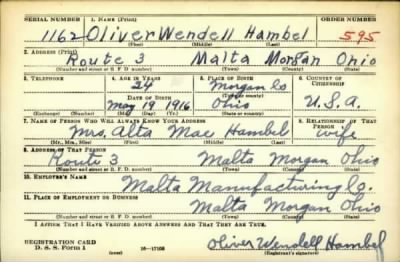 SERIAL NUMBER 1. NAME (Print) ORDER NUMBER
1162 Oliver Wendell Hambel 595
(First) (Middle) (Last)
2. ADDRESS (Print)
Route 3 Malta Morgan Ohio
(Number and street or R. F. D. number) (Town) (County) (State)
3. TELEPHONE 4. AGE IN YEARS 5. PLACE OF BIRTH 6. COUNTRY OF CITIZENSHIP
24 Morgan Co
DATE OF BIRTH (Town or county)
May 19 1916 Ohio U.S.A.
(Exchange) (Number) (Mo.) (Day) (Yr.) (State or country)
7. NAME OF PERSON WHO WILL ALWAYS KNOW YOUR ADDRESS 8. RELATIONSHIP OF THAT PERSON
Mrs. Alta Mae Hambel wife
(Mr., Mrs., Miss) (First) (Middle) (Last)
9. ADDRESS OF THAT PERSON
Route 3 Malta Morgan Ohio
(Number and street or R. F. D. number) (Town) (County) (State)
10. EMPLOYER'S NAME
Malta Manufacturing Co.
11. PLACE OF EMPLOYMENT OR BUSINESS
Malta Morgan Ohio
(Number and street or R. F. D. number) (Town) (County) (State)
I AFFIRM THAT I HAVE VERIFIED ABOVE ANSWERS AND THAT THEY ARE TRUE.
REGISTRATION CARD
D. S. S. Form 1 16—17105 Oliver Wendell Hambel
(over) (Registrant's signature)